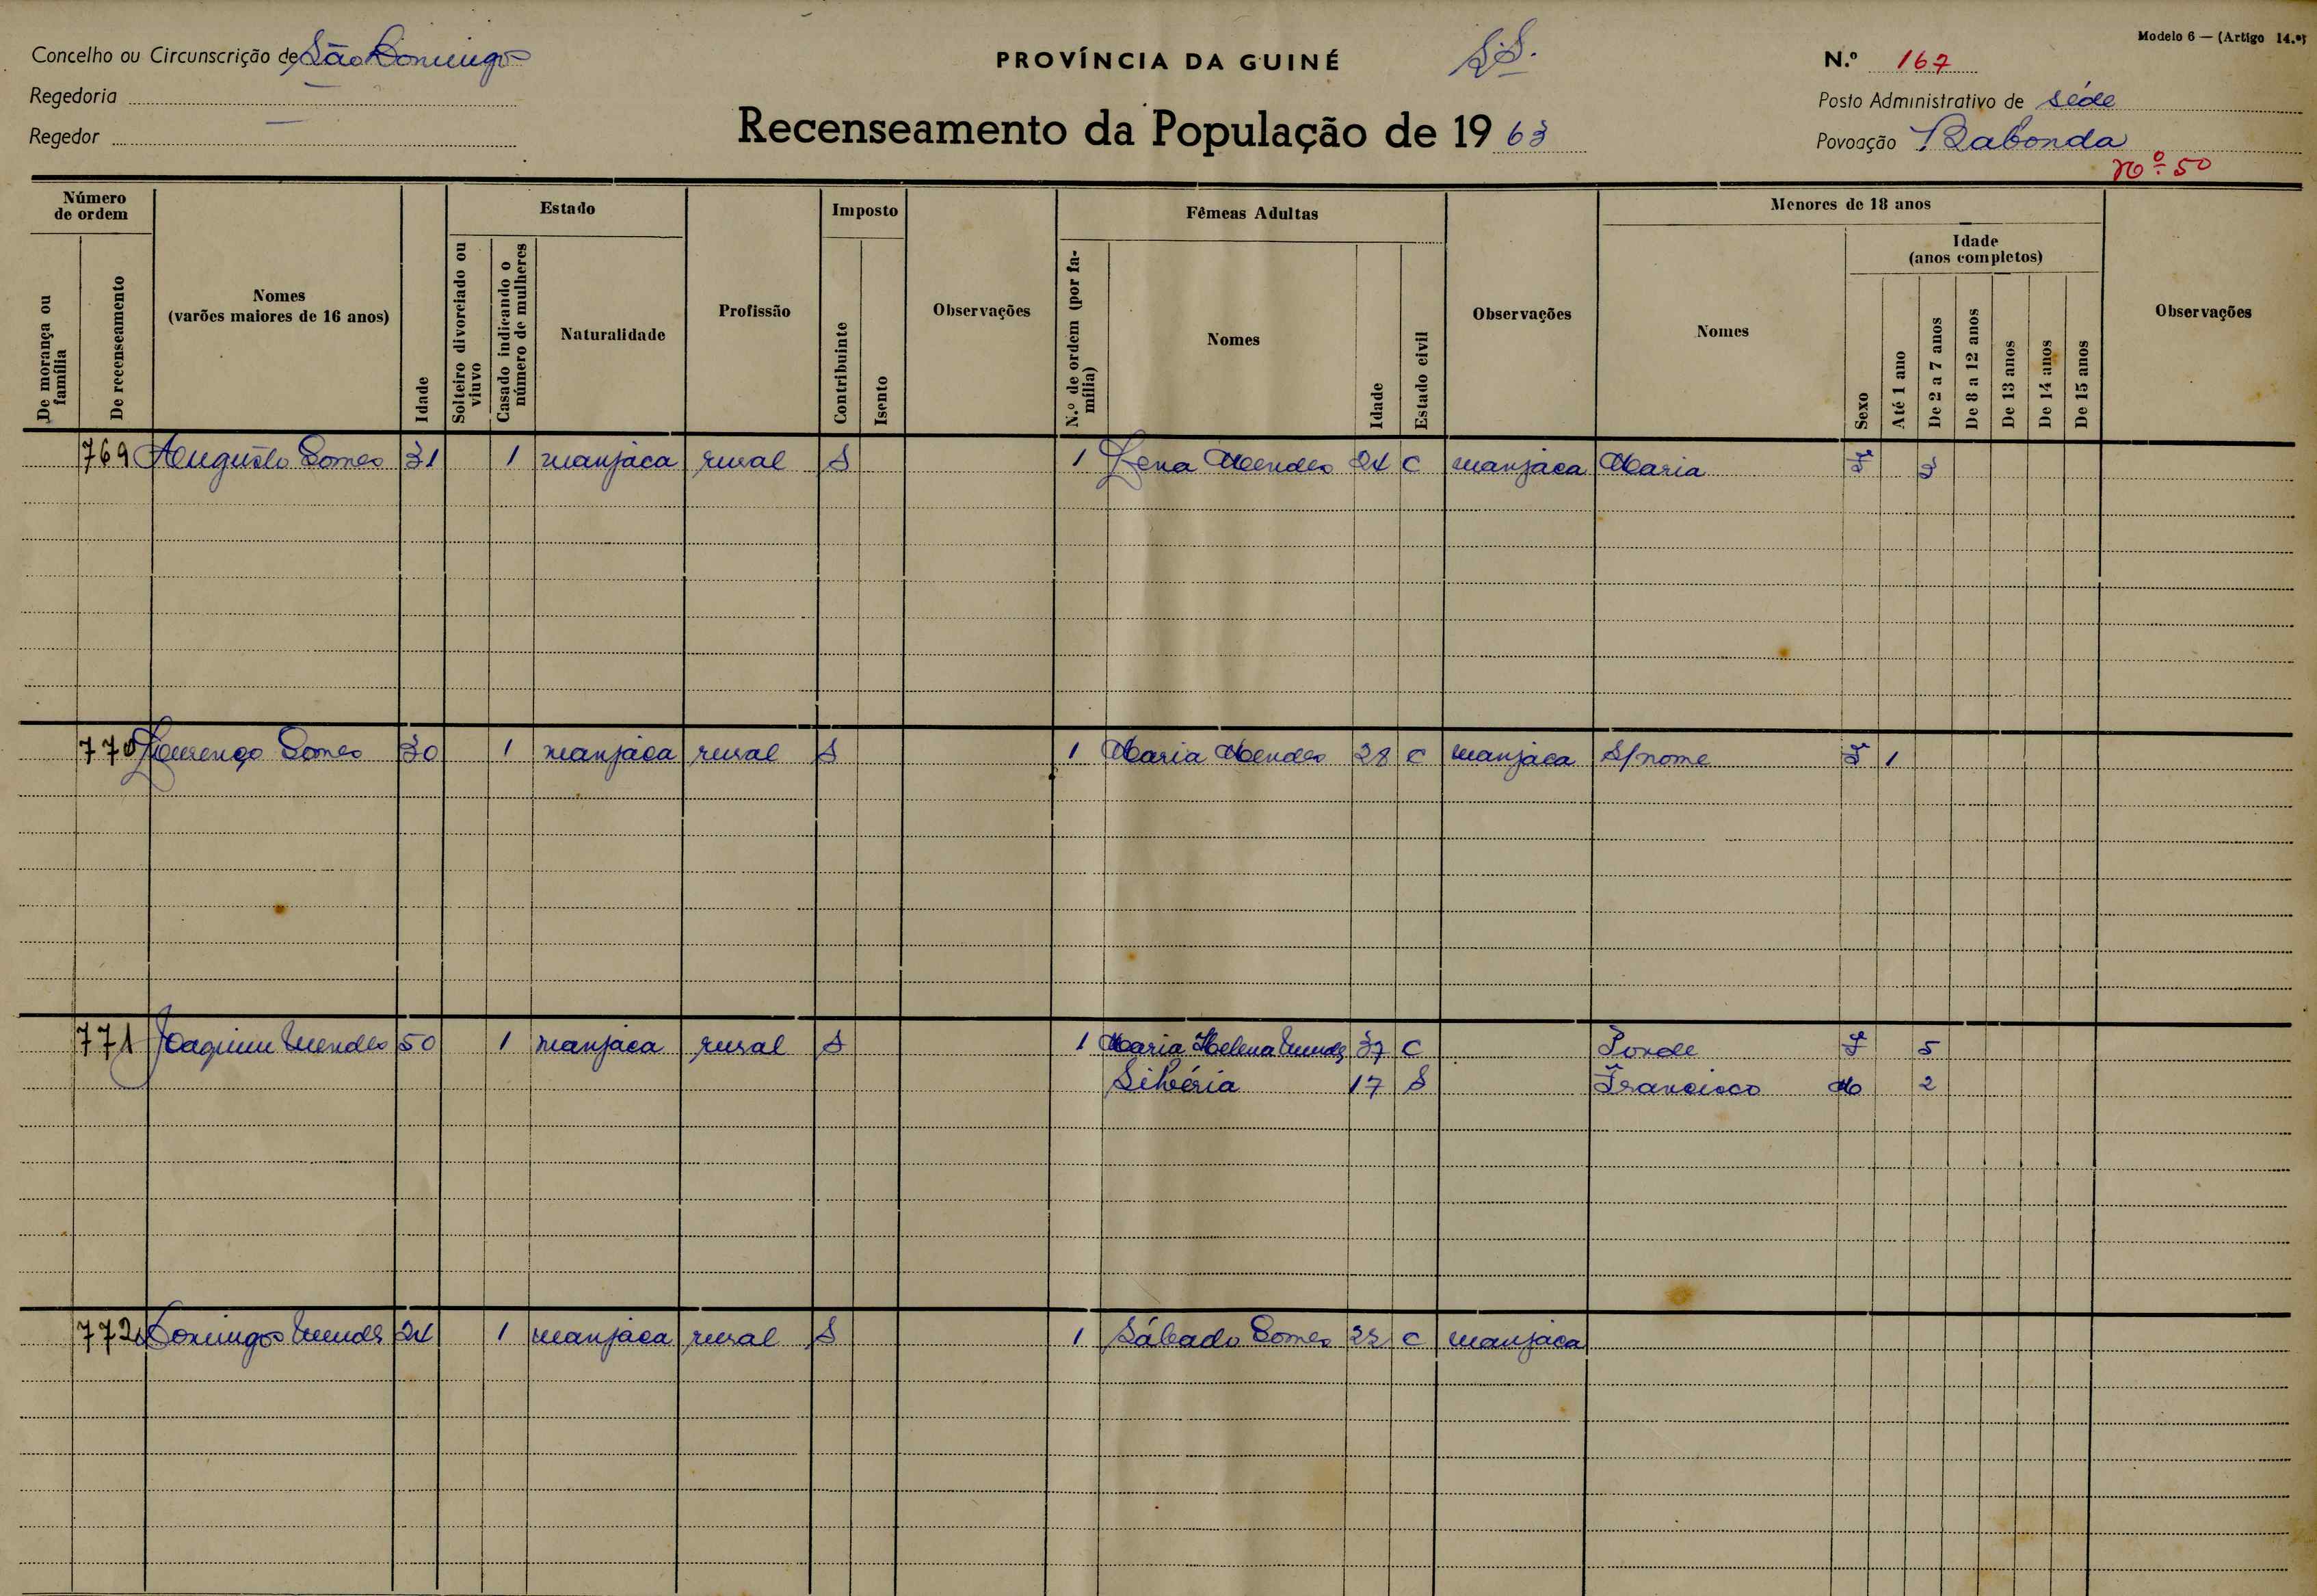 Modelo 6 — (Artigo 14.º)
Concelho ou Circunscrição de São Domingos PROVÍNCIA DA GUINÉ S.S. N.º 167
Regedoria Posto Administrativo de séde
Regedor — Recenseamento da População de 1963 Povoação Babonda
Nº 50
Número de ordem
De morança ou família
De recenseamento
Nomes (varões maiores de 16 anos)
Idade
Estado
Solteiro divorciado ou viuvo
Casado indicando o número de mulheres
Naturalidade
Profissão
Imposto
Contribuinte
Isento
Observações
Fêmeas Adultas
N.º de ordem (por família)
Nomes
Idade
Estado civil
Observações
Menores de 18 anos
Nomes
Sexo
Idade (anos completos)
Até 1 ano
De 2 a 7 anos
De 8 a 12 anos
De 13 anos
De 14 anos
De 15 anos
Observações
769 Augusto Gomes 31 1 manjaca rural S 1 Lena Mendes 24 C manjaca Maria F
770 Lourenço Gomes 30 1 manjaca rural S 1 Maria Mendes 28 C manjaca S/nome F 1
771 Joaquim Mendes 50 1 manjaca rural S 1 Maria Helena Mendes 37 C F 5
Silvéria 17 S Francisco M 2
772 Domingos Mendes 24 1 manjaca rural S 1 Sábado Gomes 22 C manjaca